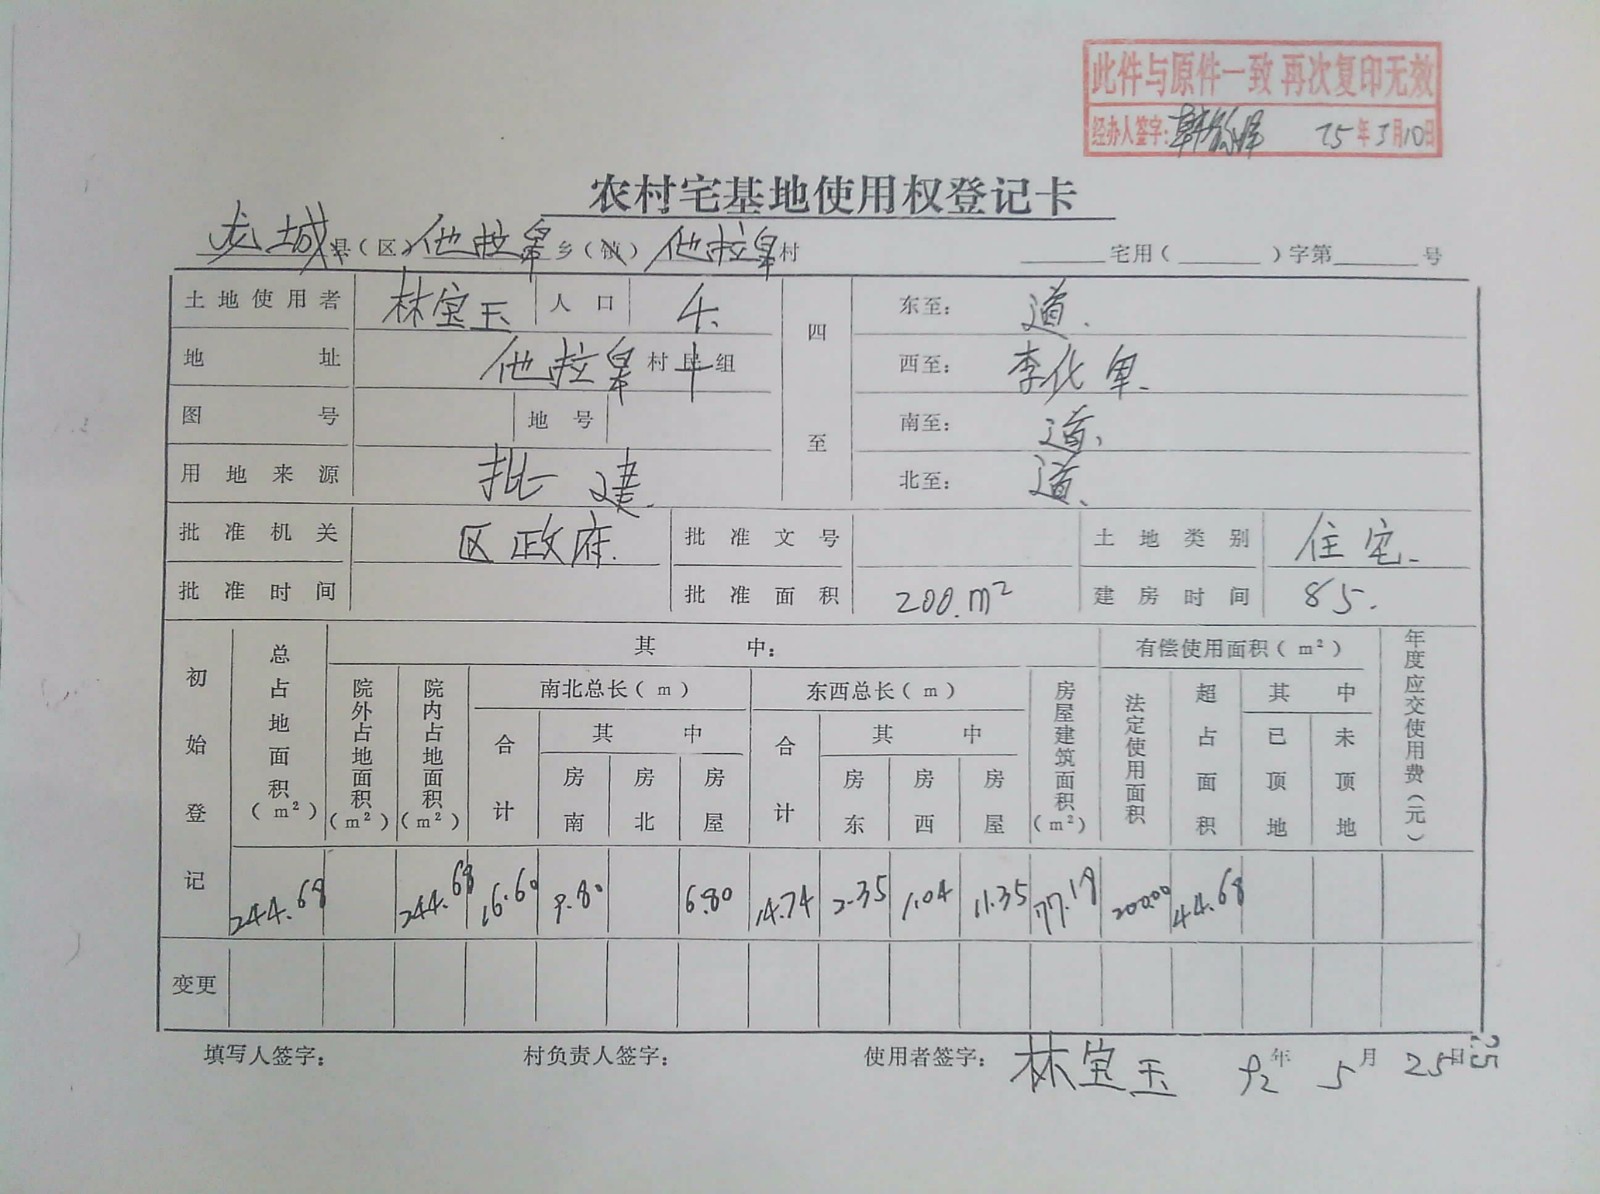 此件与原件一致 再次复印无效
经办人签字: 25年3月10日
农村宅基地使用权登记卡
龙城县(区)他拉皋乡(镇)他拉皋村 宅用( )字第 号
土地使用者 林宝玉 人口 4. 四至 东至: 道.
地址 他拉皋村民组 西至: 李化军.
图号 地号 南至: 道.
用地来源 批建. 北至: 道.
批准机关 区政府. 批准文号 土地类别 住宅.
批准时间 批准面积 200.m² 建房时间 85.
初始登记 总占地面积(m²) 其中: 有偿使用面积(m²) 年度应交使用费(元)
院外占地面积(m²) 院内占地面积(m²) 南北总长(m) 东西总长(m) 房屋建筑面积(m²) 法定使用面积 超占面积 其中
合计 其中 合计 其中 已顶地 未顶地
房南 房北 房屋 房东 房西 房屋
244.68 244.68 16.60 9.80 6.80 14.74 2.35 1.04 11.35 77.18 200.00 44.68
变更
填写人签字: 村负责人签字: 使用者签字: 林宝玉 92年5月25日
25